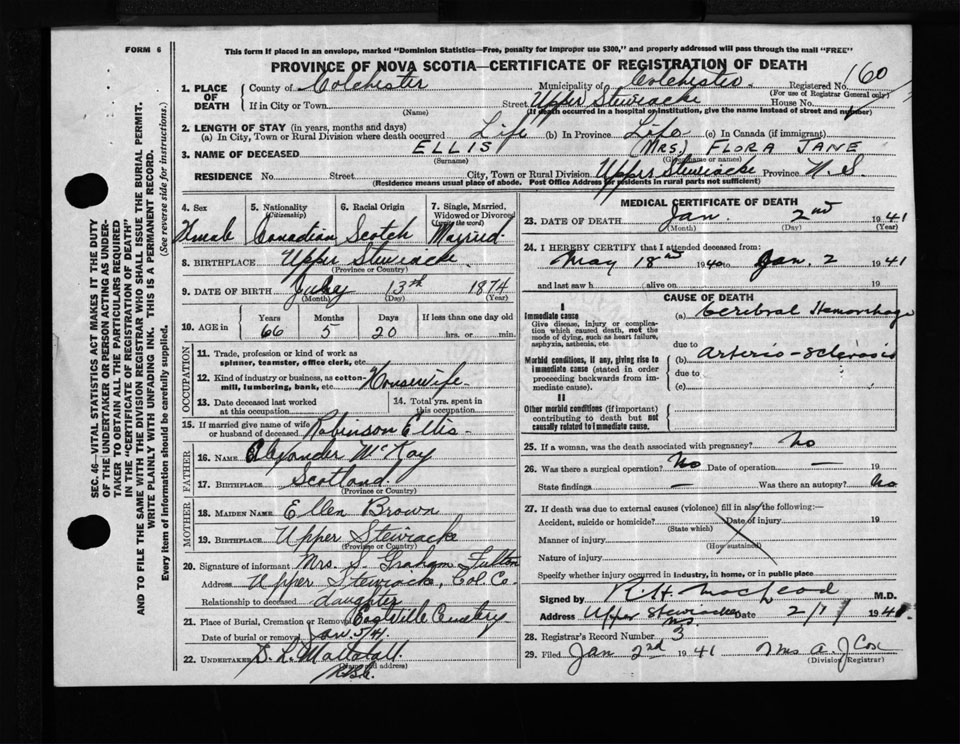 FORM 6
This form if placed in an envelope, marked "Dominion Statistics—Free, penalty for improper use $300," and properly addressed will pass through the mail "FREE"
PROVINCE OF NOVA SCOTIA—CERTIFICATE OF REGISTRATION OF DEATH
1. PLACE OF DEATH
County of Colchester Municipality of Colchester Registered No. 160
(For use of Registrar General only)
If in City or Town Street Upper Stewiacke House No.
(Name) (If death occurred in a hospital or institution, give the name instead of street and number)
2. LENGTH OF STAY (in years, months and days)
(a) In City, Town or Rural Division where death occurred Life (b) In Province Life (c) In Canada (if immigrant)
3. NAME OF DECEASED ELLIS (MRS.) FLORA JANE
(Surname) (Given name or names)
RESIDENCE No. Street City, Town or Rural Division Upper Stewiacke Province N.S.
(Residence means usual place of abode. Post Office Address for residents in rural parts not sufficient)
4. Sex 5. Nationality (Citizenship) 6. Racial Origin 7. Single, Married, Widowed or Divorced (write the word)
Female Canadian Scotch Married
8. BIRTHPLACE Upper Stewiacke
(Province or Country)
9. DATE OF BIRTH July 13th 1874
(Month) (Day) (Year)
10. AGE in Years Months Days If less than one day old
66 5 20 hrs. or min.
OCCUPATION
11. Trade, profession or kind of work as spinner, teamster, office clerk, etc.
12. Kind of industry or business, as cotton-mill, lumbering, bank, etc. Housewife
13. Date deceased last worked at this occupation 14. Total yrs. spent in this occupation
15. If married give name of wife or husband of deceased Robinson Ellis
FATHER
16. NAME Alexander McKay
17. BIRTHPLACE Scotland
(Province or Country)
MOTHER
18. MAIDEN NAME Ellen Brown
19. BIRTHPLACE Upper Stewiacke
(Province or Country)
20. Signature of informant Mrs. S. Graham Fulton
Address Upper Stewiacke, Col. Co.
Relationship to deceased daughter
21. Place of Burial, Cremation or Removal Eastville Cemetery
Date of burial or removal Jan. 5/41
22. UNDERTAKER D. L. Mattatall
(Name and address)
MEDICAL CERTIFICATE OF DEATH
23. DATE OF DEATH Jan. 2nd 1941
(Month) (Day) (Year)
24. I HEREBY CERTIFY that I attended deceased from:
May 18th 1940 to Jan. 2 1941
and last saw h alive on 19
CAUSE OF DEATH
I
Immediate cause (a) Cerebral Hemorrhage
Give disease, injury or complication which caused death, not the mode of dying, such as heart failure, asphyxia, asthenia, etc.
due to
Morbid conditions, if any, giving rise to immediate cause (stated in order proceeding backwards from immediate cause)
(b) Arterio-sclerosis
due to
(c)
II
Other morbid conditions (if important) contributing to death but not causally related to immediate cause.
25. If a woman, was the death associated with pregnancy? No
26. Was there a surgical operation? No Date of operation — 19
State findings — Was there an autopsy? No
27. If death was due to external causes (violence) fill in also the following:—
Accident, suicide or homicide? Date of injury 19
(State which)
Manner of injury
(How sustained)
Nature of injury
Specify whether injury occurred in industry, in home, or in public place
Signed by R. H. MacLeod M.D.
Address Upper Stewiacke N.S. Date 2/1/ 1941
28. Registrar's Record Number 3
29. Filed Jan 2nd 1941 Mrs A. J. Cox
(Division Registrar)
SEC. 46—VITAL STATISTICS ACT MAKES IT THE DUTY
OF THE UNDERTAKER OR PERSON ACTING AS UNDER-
TAKER TO OBTAIN ALL THE PARTICULARS REQUIRED
IN THE "CERTIFICATE OF REGISTRATION OF DEATH"
AND TO FILE THE SAME WITH THE DIVISION REGISTRAR WHO SHALL ISSUE THE BURIAL PERMIT.
WRITE PLAINLY WITH UNFADING INK. THIS IS A PERMANENT RECORD.
Every item of information should be carefully supplied. (See reverse side for instructions.)